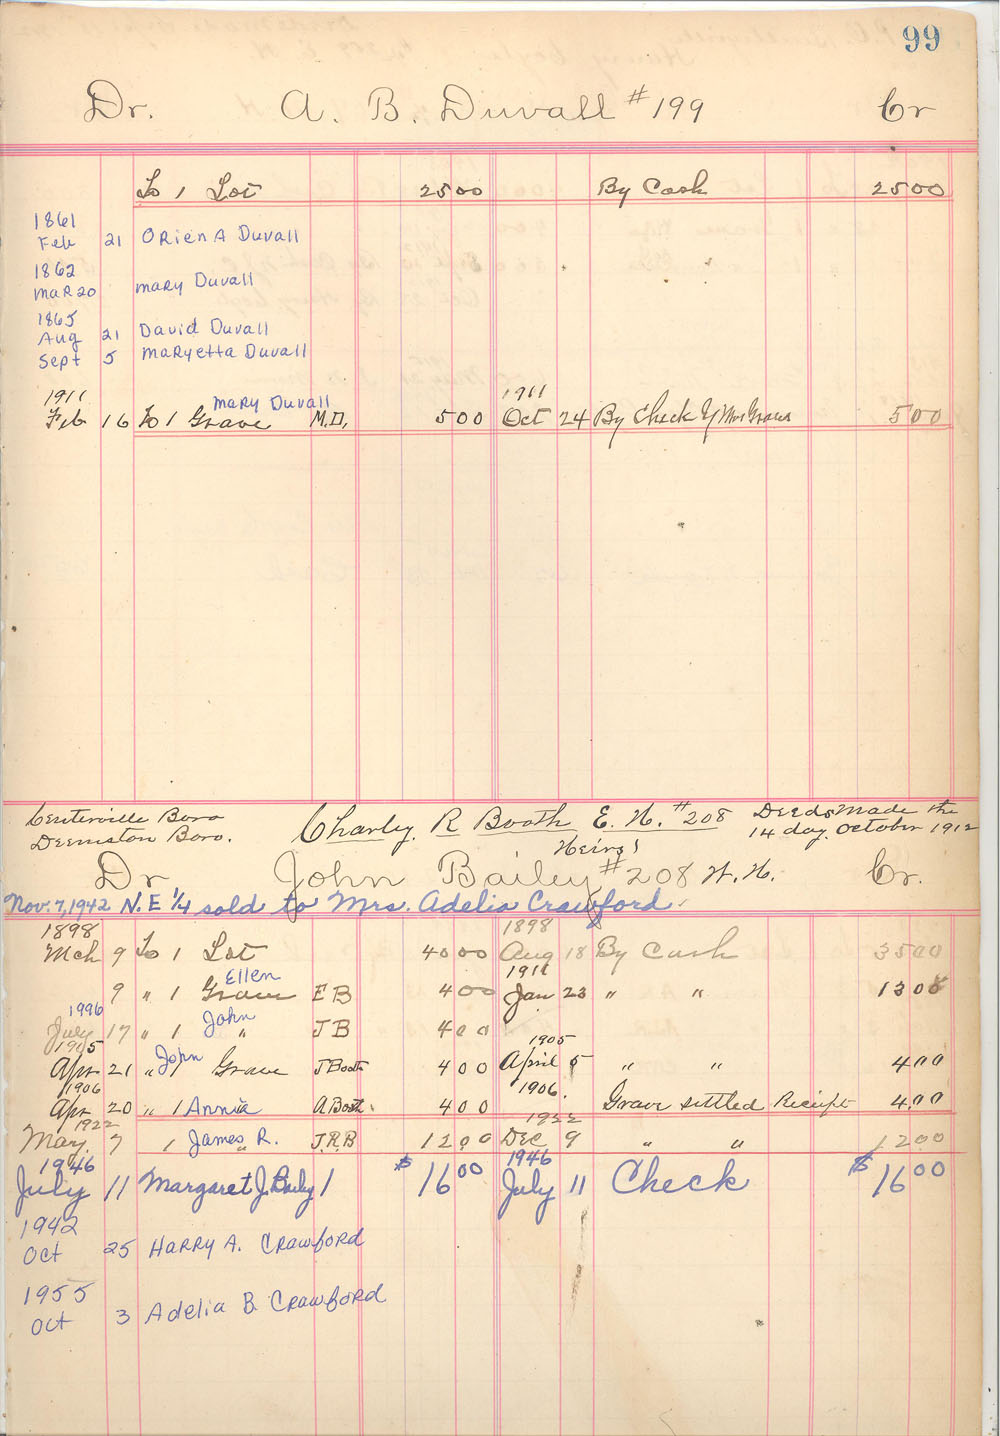 99
Dr. A. B. Duvall #199 Cr
To 1 Lot 25 00 By Cash 25 00
1861
Feb 21 Orien A Duvall
1862
Mar 20 Mary Duvall
1865
Aug 21 David Duvall
Sept 5 Maryetta Duvall
1911 Mary Duvall 1911
Feb 16 To 1 Grave M.D. 5 00 Oct 24 By Check 5 00
Centerville Boro Charley R Booth E. H. #208 Deeds Made the
Deemston Boro. Heirs 14 day October 1912
Dr John Bailey #208 W. H. Cr.
Nov. 7, 1942 N. E 1/4 sold to Mrs. Adelia Crawford
1898 1898
Mch 9 To 1 Lot 40 00 Aug 18 By Cash 35 00
Ellen 1911
9 " 1 Grave E B 4 00 Jan 23 " " 13 00
1996 John
July 17 " 1 " J B 4 00
1905 John 1905
Apr 21 " 1 Grave J Booth 4 00 April 5 " " 4 00
1906 1906.
Apr 20 " 1 Annia A Booth. 4 00 Grave settled Receipt 4 00
1922 1922
May 7 1 James R. J.R.B 12 00 Dec 9 " " 12 00
1946 1946
July 11 Margaret J. Baily 1 $ 16 00 July 11 Check $ 16 00
1942
Oct 25 Harry A. Crawford
1955
Oct 3 Adelia B Crawford